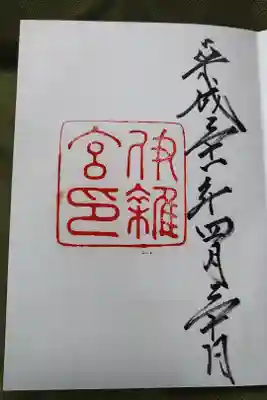 平成三十一年四月三十日
伊雜
宮印